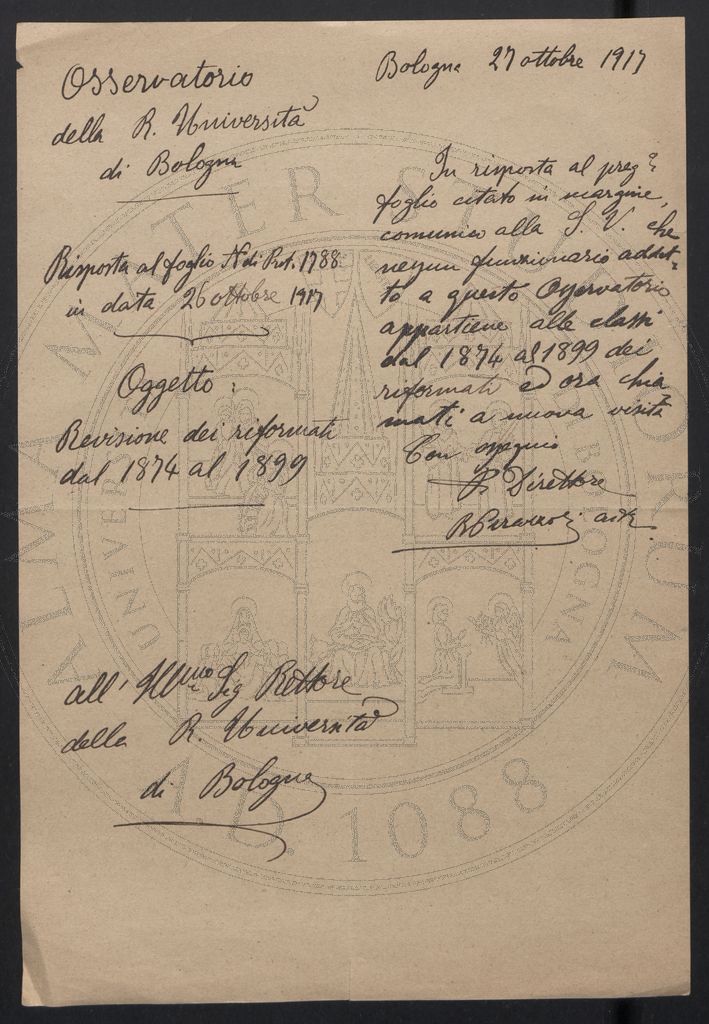 Osservatorio
della R. Università
di Bologna
Risposta al foglio N. di Prot. 1788
in data 26 ottobre 1917
Oggetto:
Revisione dei riformati
dal 1874 al 1899
Bologna 27 ottobre 1917
In risposta al preg.o
foglio citato in margine,
comunico alla S. V. che
nessun funzionario addet-
to a questo Osservatorio
appartiene alle classi
dal 1874 al 1899 dei
riformati ed ora chia
mati a nuova visita
Con ossequio
Direttore
all' Ill.mo Sig Rettore
della R. Università
di Bologna
ALMA MATER STUDIORUM
A.D. 1088